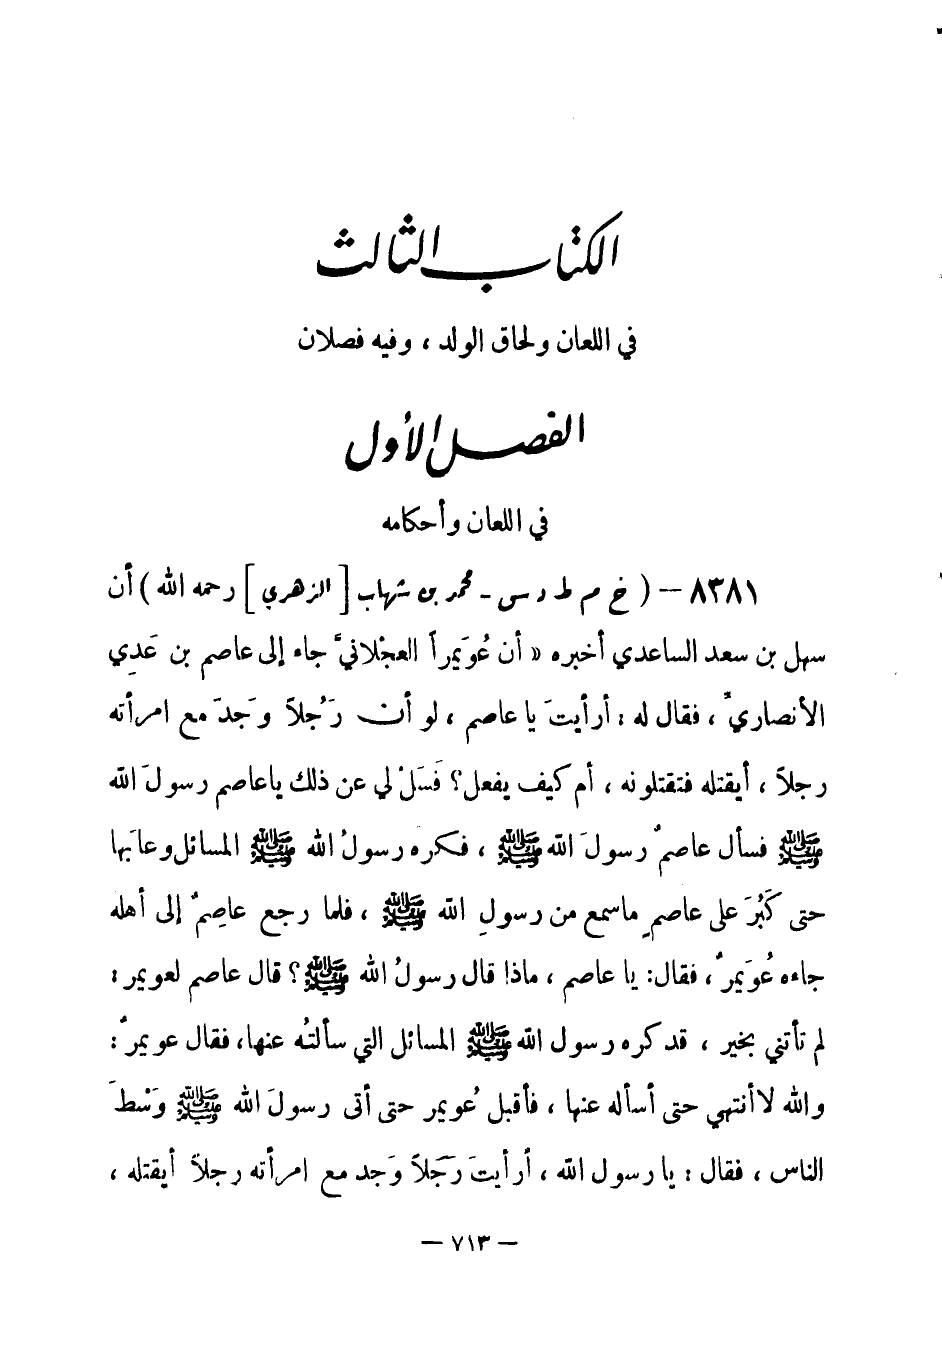 الكتاب الثالث
في اللعان ولحاق الولد ، وفيه فصلان
الفصل الأول
في اللعان وأحكامه
٨٣٨١ – ( خ م ط د س - محمد بن شهاب [ الزهري ] رحمه الله ) أن
سهل بن سعد الساعدي أخبره « أن عُوَيمراً العجْلانيَّ جاء إلى عاصم بن عَدِي
الأنصاريِّ ، فقال له : أرأيتَ يا عاصم ، لو أن رَجُلاً وَجَدَ مع امرأته
رجلاً ، أيقتله فتقتلونه ، أم كيف يفعل؟ فَسَلْ لي عن ذلك ياعاصم رسولَ الله
ﷺ فسأل عاصمٌ رسولَ الله ﷺ ، فكره رسولُ الله ﷺ المسائل وعابَها
حتى كَبُرَ على عاصمٍ ماسمع من رسولِ الله ﷺ ، فلما رجع عاصِمٌ إلى أهله
جاءه عُوَيمرٌ ، فقال: يا عاصم ، ماذا قال رسولُ الله ﷺ ؟ قال عاصم لعويمر :
لم تأتني بخير ، قد كره رسول الله ﷺ المسائل التي سألتُه عنها، فقال عويمرٌ :
والله لاأنتهي حتى أسأله عنها ، فأقبل عُويمر حتى أتى رسولَ الله ﷺ وَسْطَ
الناس ، فقال : يا رسول الله ، أرأيتَ رَجَلاً وَجد مع امرأته رجلاً أيقتله ،
– ٧١٣ –